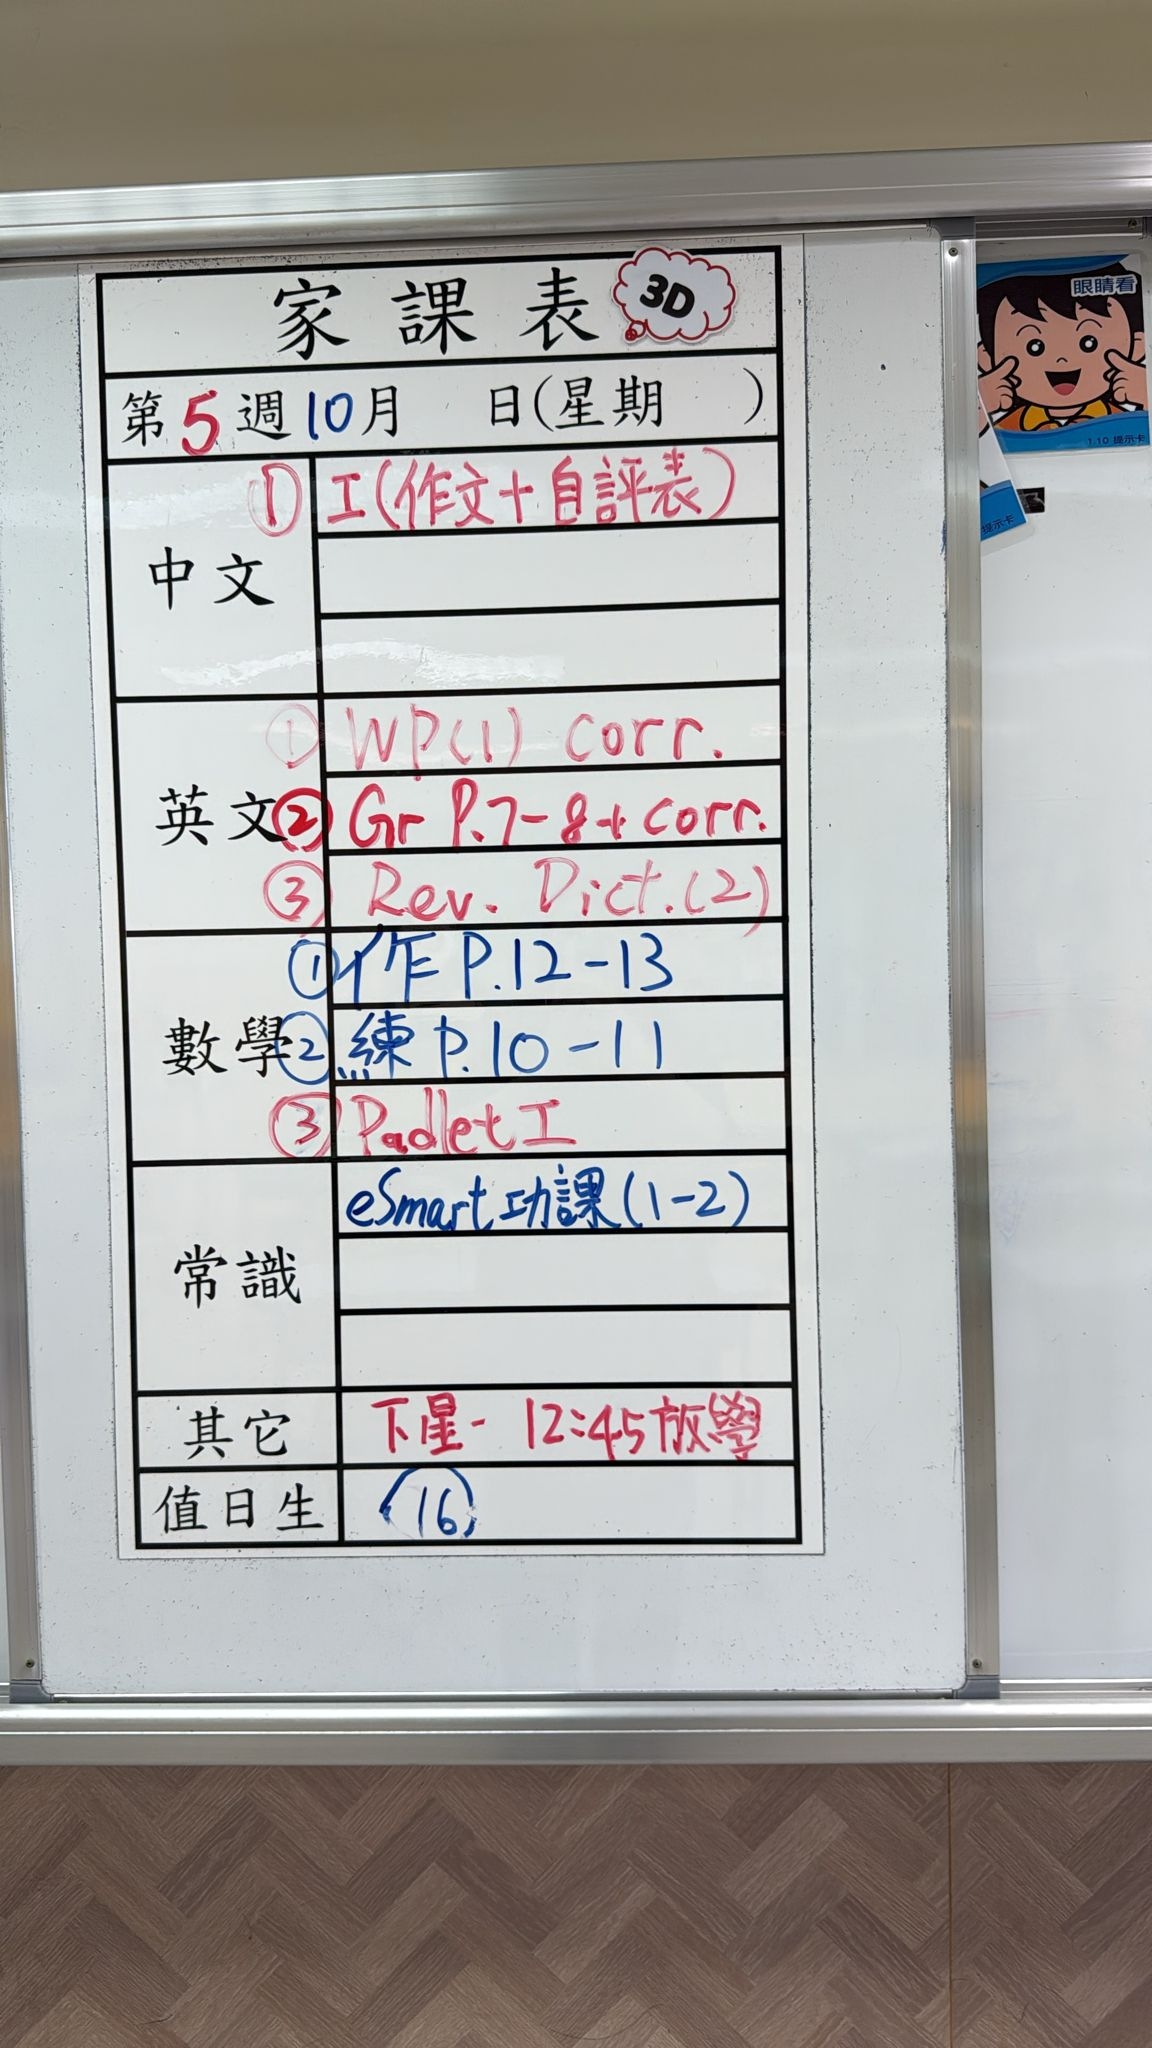 家課表 3D
第5週10月 日(星期 )
中文
① 工(作文+自評表)
英文
① WP(1) corr.
② Gr P.7-8+corr.
③ Rev. Dict.(2)
數學
① 作 P.12-13
② 練 P.10-11
③ Padlet工
常識
eSmart功課(1-2)
其它
下星- 12:45放學
值日生
16
眼睛看
1.10 提示卡
提示卡